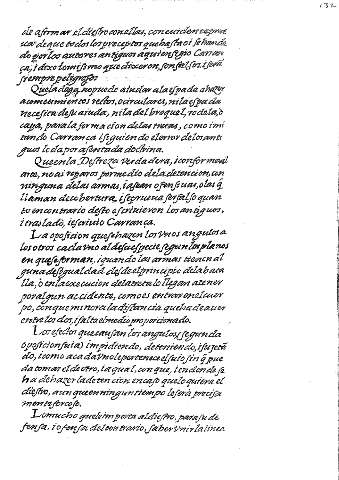 132
de afirmar el diestro con ellas, con euidencia y prue
ua: de que todos los preceptos que hasta oi se han da
do por los autores antiguos a quien siguio Carran
ça, i dixo lo mismo que dixeron, son falsos, i será
siempre peligrosos
Que la daga no puede aiudar a la espada a hazer
acometimientos rectos, o circulares, ni la espada
necesita de su aiuda, ni la del broquel, rodela, o
capa, para la formacion de las tretas, como imi
tando Carrança i siguiendo el error de los anti
guos le da por asentada dotrina.
Que en la Destreza Verdadera, i conforme al
arte, no ai reparos por medio de la detencion, con
ninguna de las armas, ia sean ofensiuas, o las q̃
llaman de cobertura, i se prueua ser falso quan
to en contrario desto escriuieron los antiguos,
i trasladó, i escriuio Carrança.
La oposicion que se hazen los vnos angulos a
los otros cada vno al de su especie, segun los planos
en que se forman, i quando las armas tienen al
guna desigualdad desde el principio de la bata
lla, o en la execucion de la treta lo llegan a tener
por algun accidente, como es entrar en el cuer
po, con que minora la distancia que ha de auer
entre los dos, i falta el medio proporcionado.
Los efectos que causan los angulos, segun la
oposicion suia, impidiendo, deteniendo, i sujetã
do, i como a cada vno le pertenece el suio sin q̃ pue
da tomar el de otro, la qual, con que, i en donde se
ha de hazer la detencion en caso que lo quiera el
diestro, aunque en ningun tiempo le será precisa
mente forçoso.
Lo mucho que le importa al diestro, para su de
fensa, i ofensa del contrario, saber vnir la linea